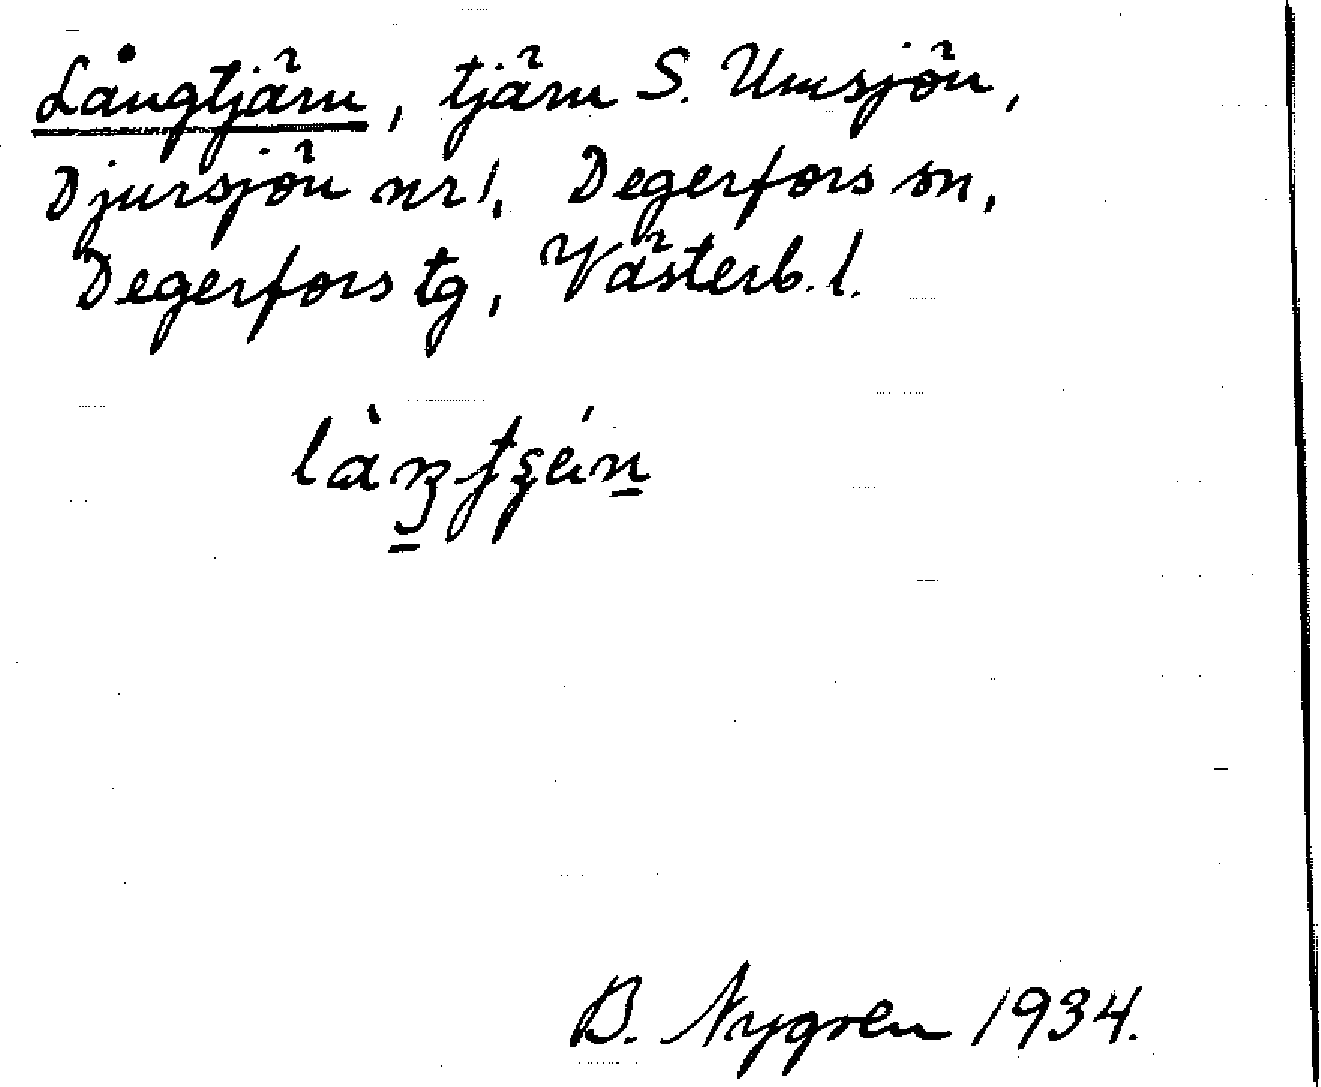 Långtjärn, tjärn S. Umsjön,
Djursjön nr 1, Degerfors sn,
Degerfors tg, Västerb. l.
B. Nygren 1934.